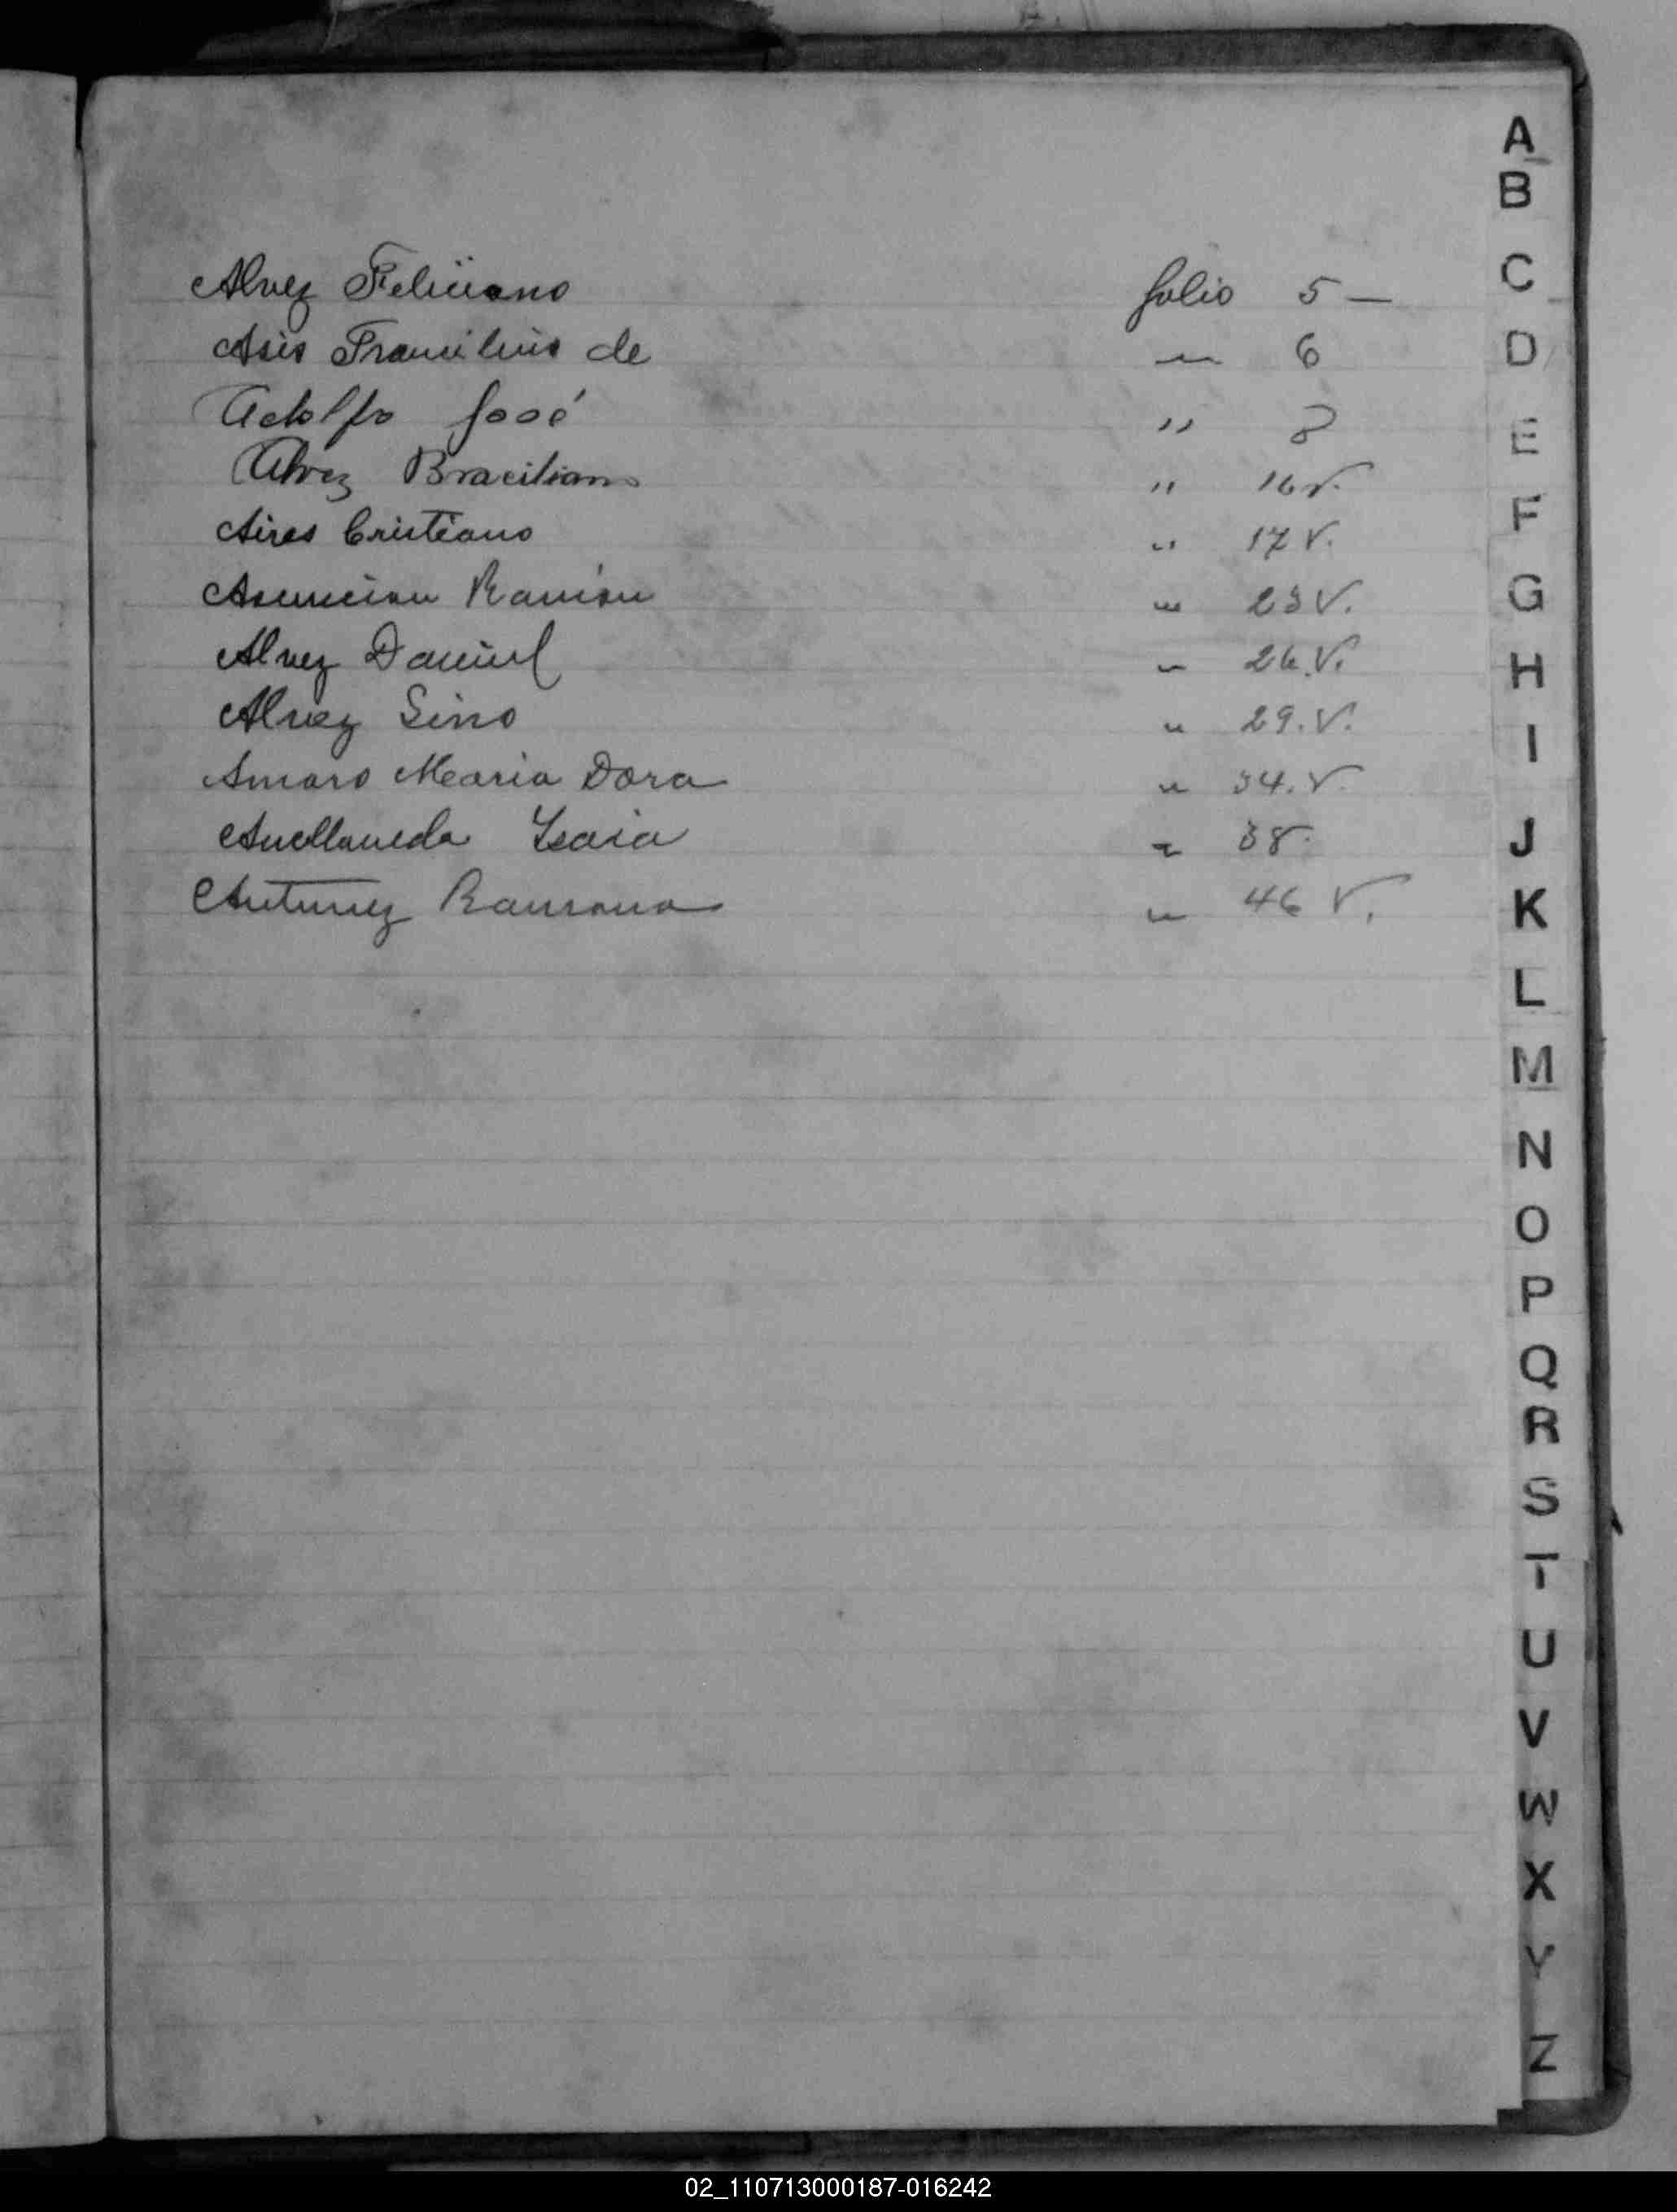 Alvez Feliciano folio 5 —
Asis Francilino de 〃 6
Adolfo José " 8
Alvez Braciliano " 16 v.
Aires Cristiano " 17 V.
Asuncion Ramón " 23 V.
Alvez Daniel " 26. V.
Alvez Lino " 29. V.
Amaro Maria Dora " 34. V.
Avellaneda Isaia " 38.
Antunez Ramona " 46 V.
A
B
C
D
E
F
G
H
I
J
K
L
M
N
O
P
Q
R
S
T
U
V
W
X
Y
Z
02_110713000187-016242